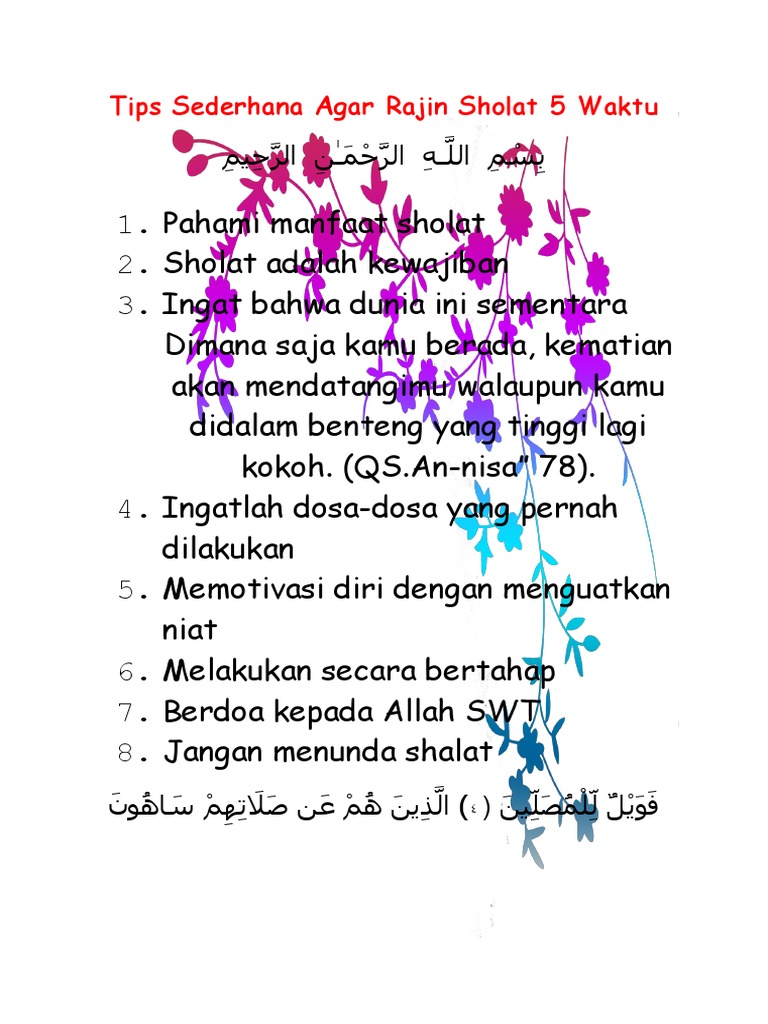 Tips Sederhana Agar Rajin Sholat 5 Waktu
بِسْمِ اللَّـهِ الرَّحْمَـٰنِ الرَّحِيمِ
1. Pahami manfaat sholat
2. Sholat adalah kewajiban
3. Ingat bahwa dunia ini sementara
Dimana saja kamu berada, kematian
akan mendatangimu walaupun kamu
didalam benteng yang tinggi lagi
kokoh. (QS.An-nisa” 78).
4. Ingatlah dosa-dosa yang pernah
dilakukan
5. Memotivasi diri dengan menguatkan
niat
6. Melakukan secara bertahap
7. Berdoa kepada Allah SWT
8. Jangan menunda shalat
فَوَيْلٌ لِّلْمُصَلِّينَ (٤) الَّذِينَ هُمْ عَن صَلَاتِهِمْ سَاهُونَ